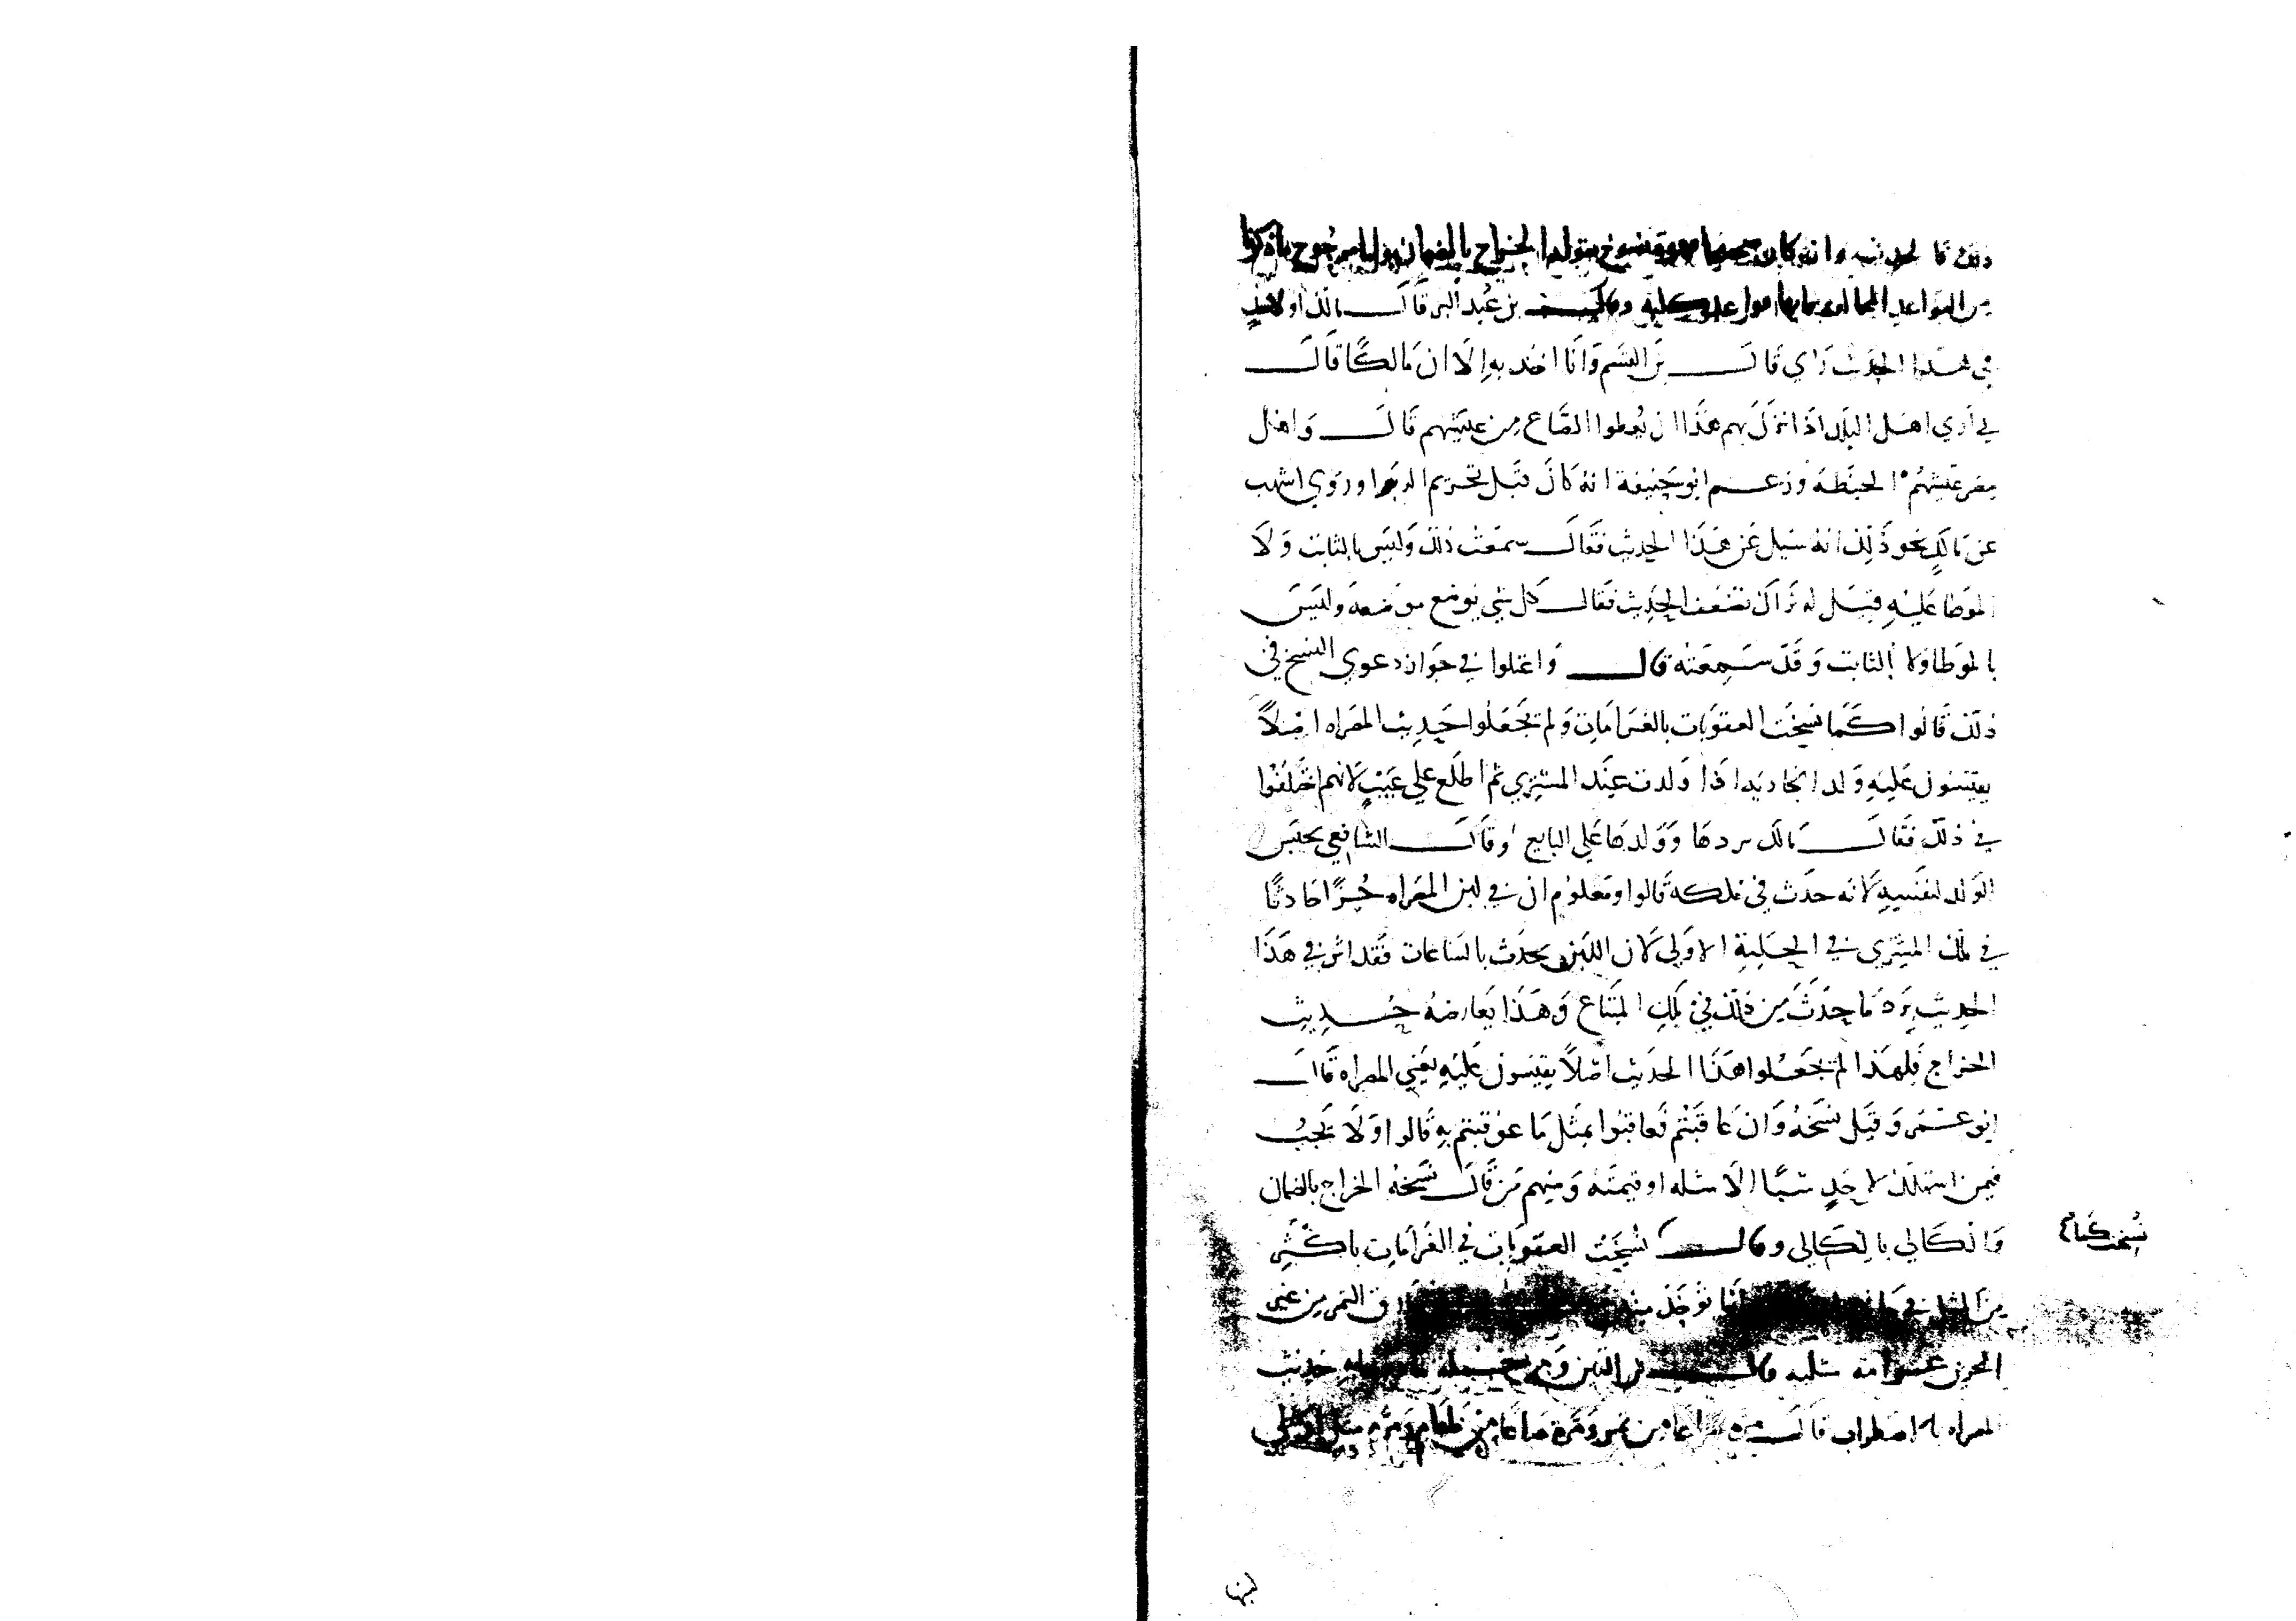 ذلك قال لحديثه وانه كان منسوخ بقوله الخراج بالضمان واما مرجوح بما ذكرنا
من القواعد كلية وقال بن عبد البر قال مالك او لاحد
في هذا الحديث راي قال بن القسم وانا اخد به الا ان مالكا قال
لي اري اهل البلد اذا نزل بهم هذا ان يعطوا الصاع من عيشهم قال واهل
مصر عيشهم الحنطه وزعم ابو حنيفة انه كان قبل تحريم الربوا وروي اشهب
عن مالك نحو ذلك انه سيل عن هذا الحديث فقال سمعت ذلك وليس بالثابت ولا
الموطا عليه فقيل له نراك تضعف الحديث فقال كل شي يوضع موضعه وليس
بالموطا ولا بالثابت وقد سمعته قال واعتلوا في جواز دعوي النسخ في
ذلك قالوا كما نسخت العقوبات بالغرامات ولم يجعلوا حديث المصراه اصلا
يقيسون عليه ولد الجاريه اذا ولدت عند المشتري ثم اطلع علي عيب لانهم اختلفوا
في ذلك فقال مالك يردها وولدها علي البايع وقال الشافعي يحتبس
الولد لنفسه لانه حدث في ملكه قالوا ومعلوم ان في لبن المصراه جزا حادثا
في ملك المشتري في الحلبة الاولي لان اللبن يحدث بالساعات فقد امر في هذا
الحديث برد ما حدث من ذلك في ملك المبتاع وهذا يعارضه حديث
الخراج فلهذا لم يجعلوا هذا الحديث اصلا يقيسون عليه يعني المصراه قال
ابو عمر وقيل نسخه وان عاقبتم فعاقبوا بمثل ما عوقبتم به قالوا ولا يجب
فيمن استهلك لاحد شيا الا مثله او قيمته ومنهم من قال نسخه الخراج بالضمان
والكالي بالكالي وقال نسخت العقوبات في الغرامات باكثر
من المثل في مانع انها توخذ منه التمر من غير
الحرز غرامة مثليه وقال بن التين حديث
المصراه به اضطراب قال مره صاعا من تمر ومرة صاعا من طعام ومره مثل او مثلي
نسخت كما
لبن